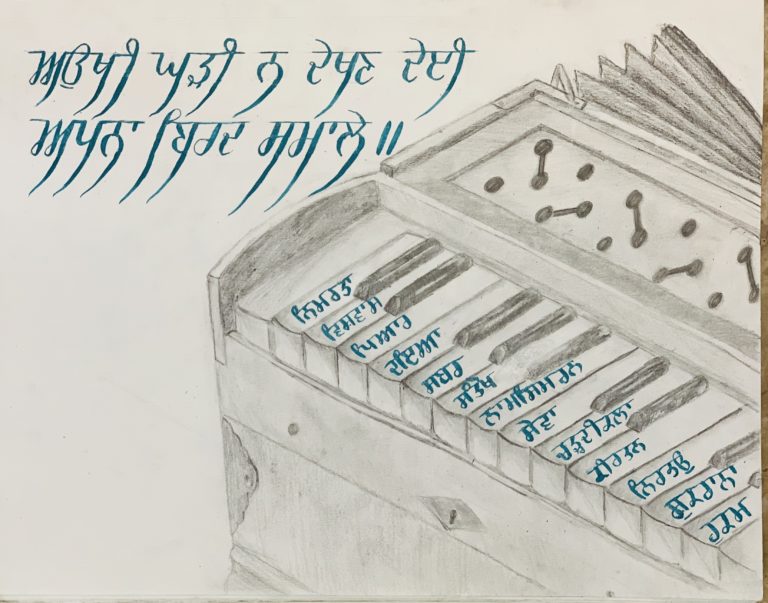 ਅਉਖੀ ਘੜੀ ਨ ਦੇਖਣ ਦੇਈ
ਅਪਨਾ ਬਿਰਦ ਸਮਾਲੇ॥
ਨਿਮਰਤਾ
ਵਿਸਵਾਸ
ਪਿਆਰ
ਦਇਆ
ਸਬਰ
ਸੰਤੋਖ
ਨਾਮਸਿਮਰਨ
ਸੇਵਾ
ਚੜ੍ਹਦੀਕਲਾ
ਕੀਰਤਨ
ਨਿਰਭਉ
ਸ਼ੁਕਰਾਨਾ
ਹੁਕਮ